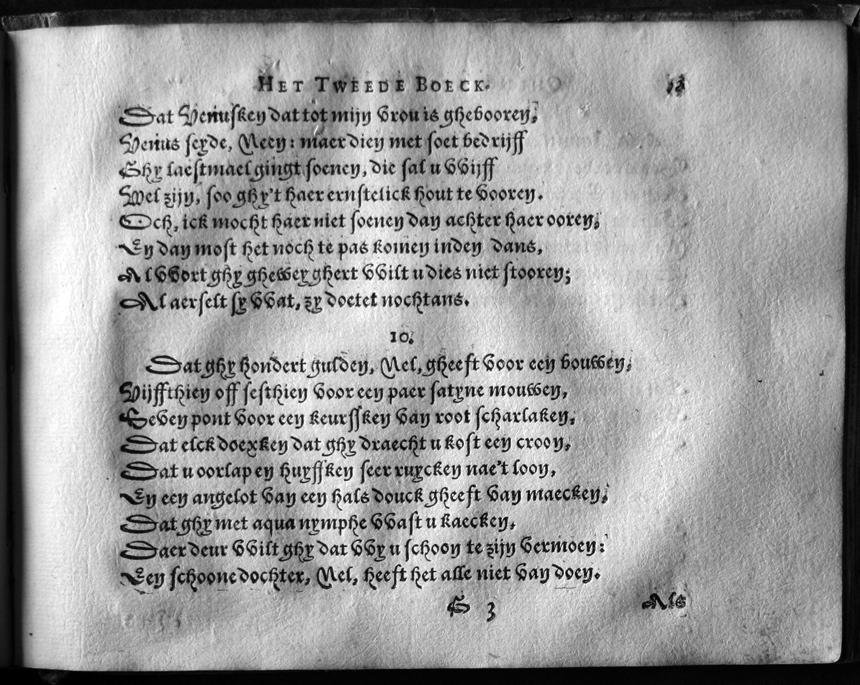 HET TWEEDE BOECK. 13
Dat Venusken dat tot mijn vrou is ghebooren,
Venus seyde, Neen: maer dien met soet bedrijff
Ghy laestmael gingt soenen, die sal u wijff
Wel zijn, soo ghy't haer ernstelick hout te vooren.
Och, ick mocht haer niet soenen dan achter haer ooren,
En dan most het noch te pas komen inden dans,
Al wort ghy gheweyghert wilt u dies niet stooren;
Al aerselt sy wat, zy doetet nochtans.
10.
Dat ghy hondert gulden, Nel, gheeft voor een bouwen,
Vijffthien off sesthien voor een paer satyne mouwen,
Seven pont voor een keurssken van root scharlaken,
Dat elck doexken dat ghy draecht u kost een croon,
Dat u oorlap en huyffken seer ruycken nae't loon,
En een angelot van een hals douck gheeft van maecken,
Dat ghy met aqua nymphe wast u kaecken,
Daer deur wilt ghy dat wy u schoon te zijn vermoen:
Een schoone dochter, Nel, heeft het alle niet van doen.
G 3 Als